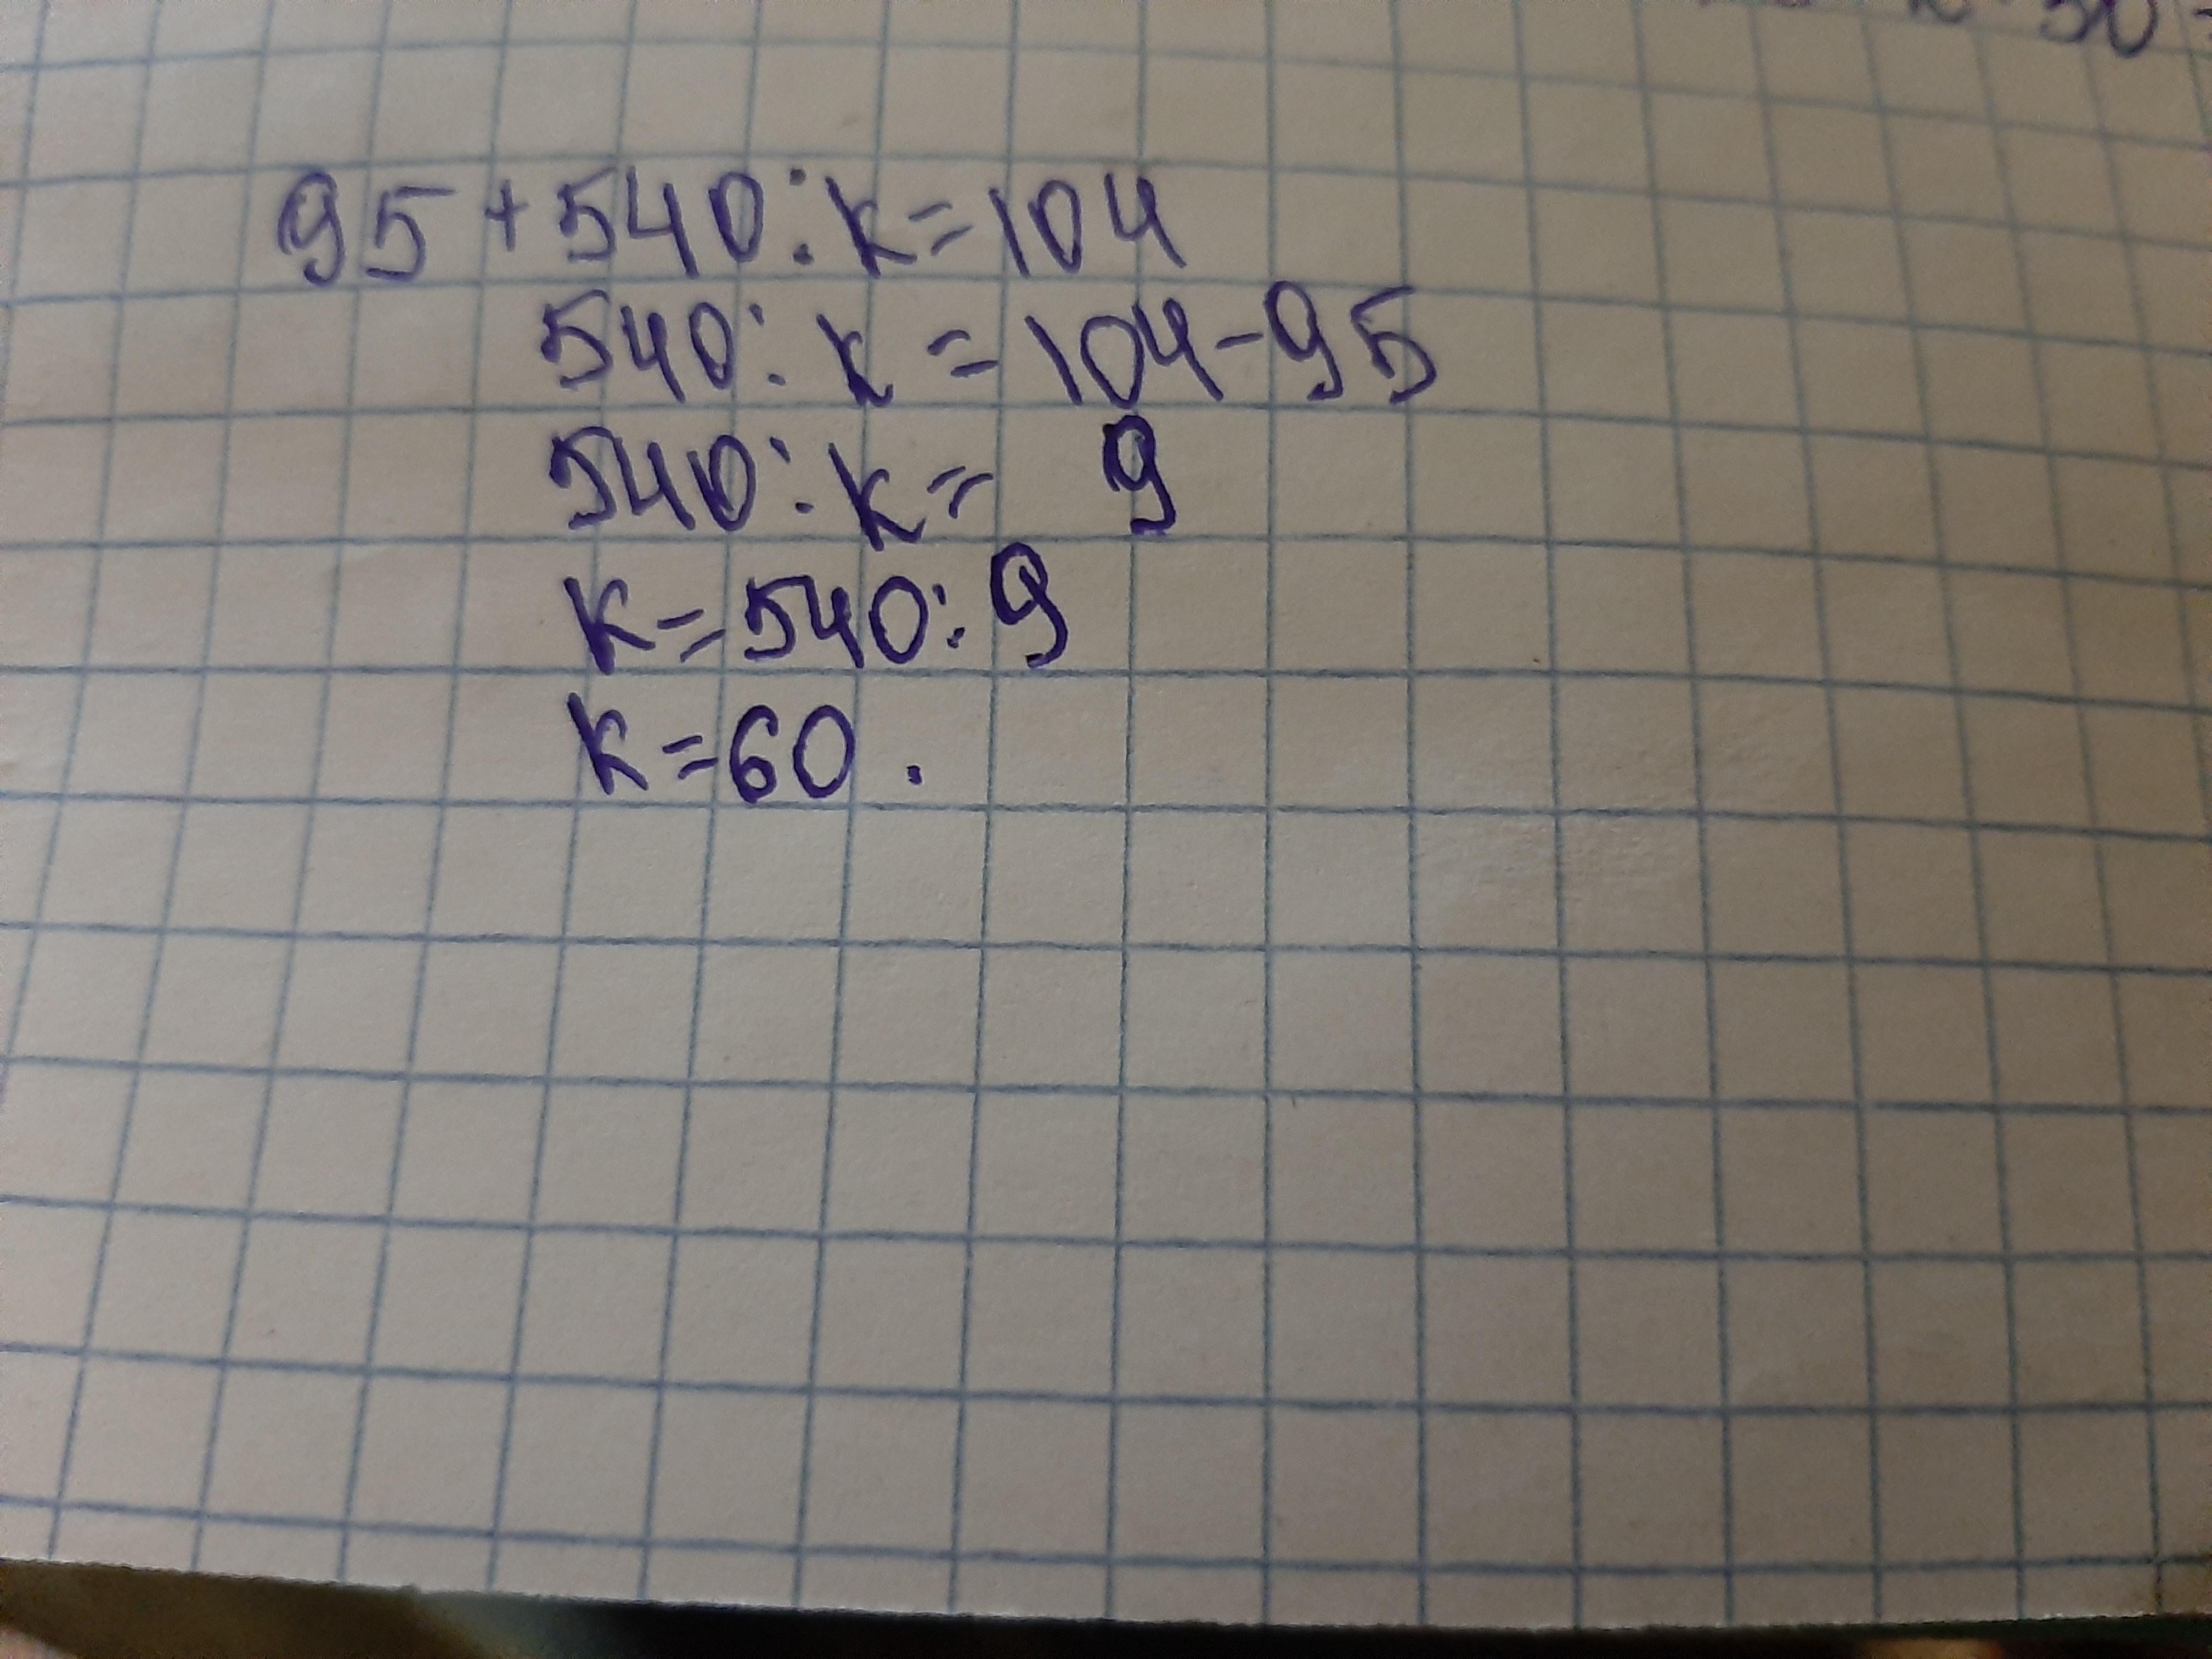 95+540:k=104
540:k=104-95
540:k= 9
k=540:9
k=60.